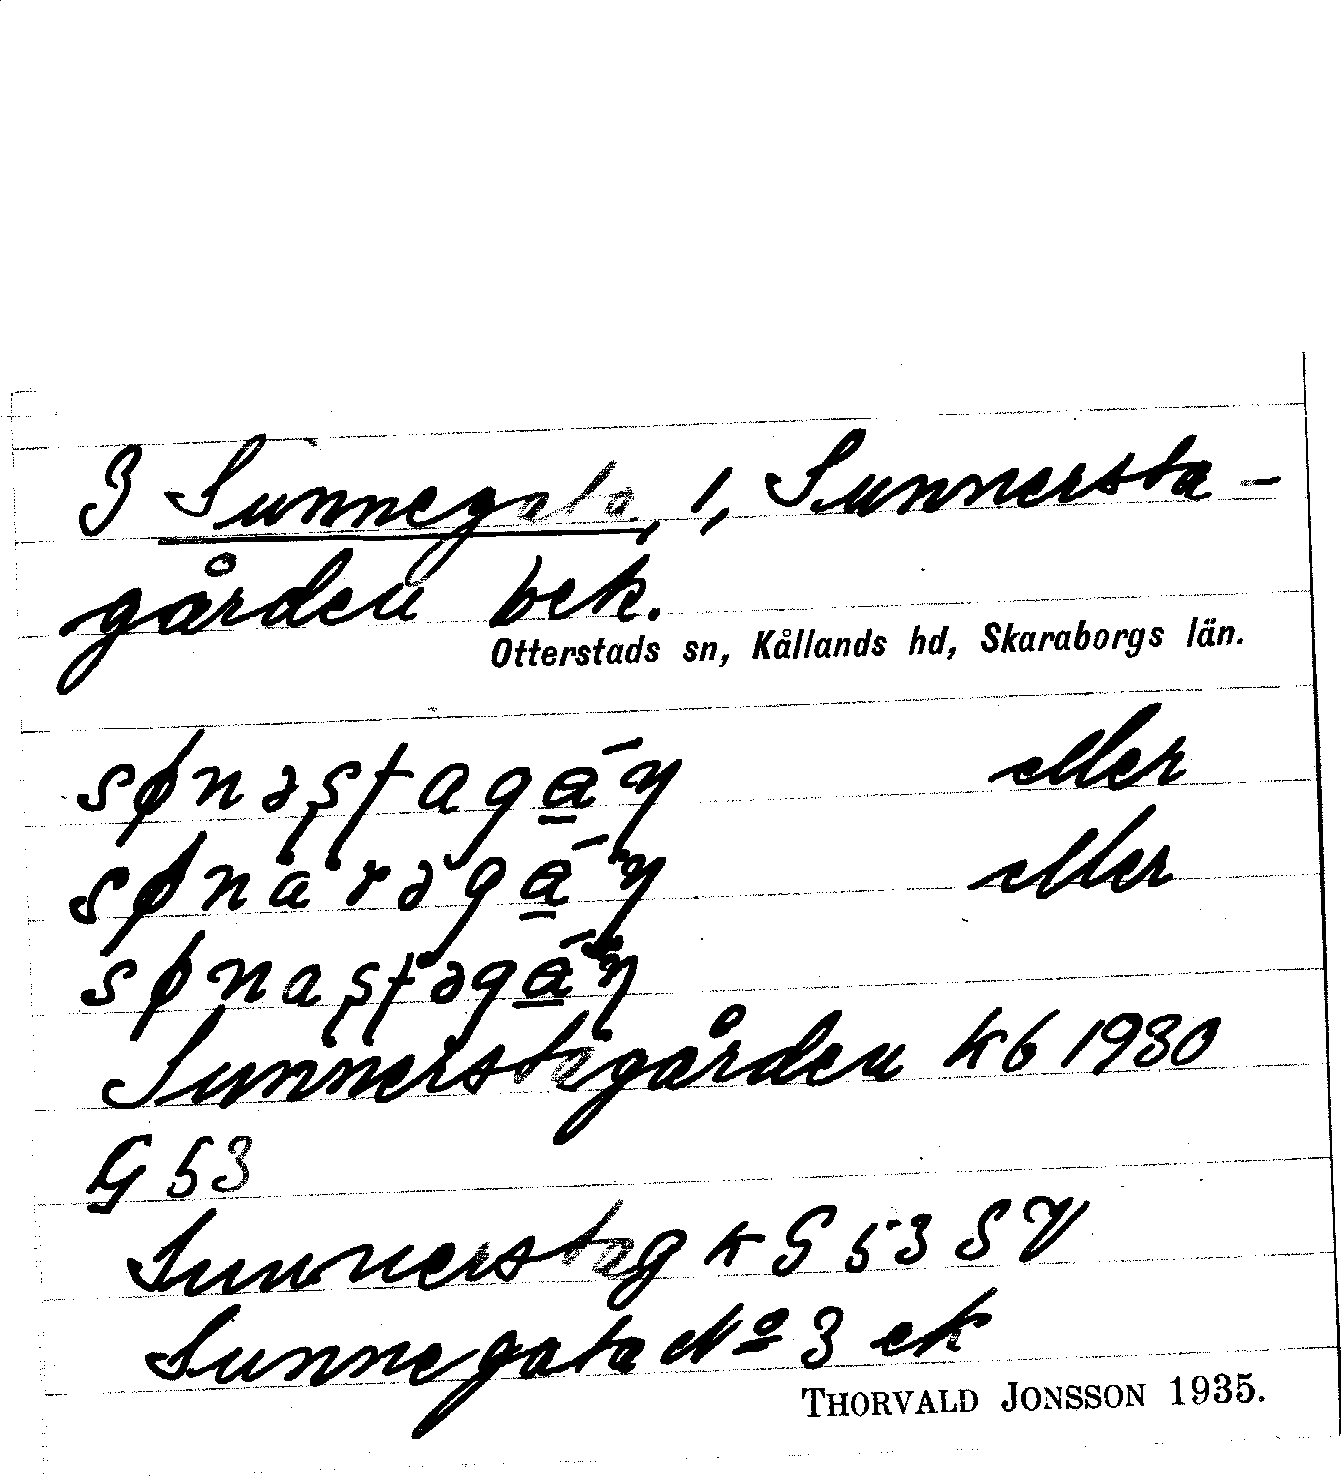 3 Sunnegata, 1, Sunnersta-
gården bek.
Otterstads sn, Kållands hd, Skaraborgs län.
sønəʂʈagáɳ eller
sønarəgáɳ eller
sønaʂʈəgáɳ
Sunnerstagården kb 1930
G 53
Sunnerstag k G 53 SV
Sunnegata No 3 ek
THORVALD JONSSON 1935.